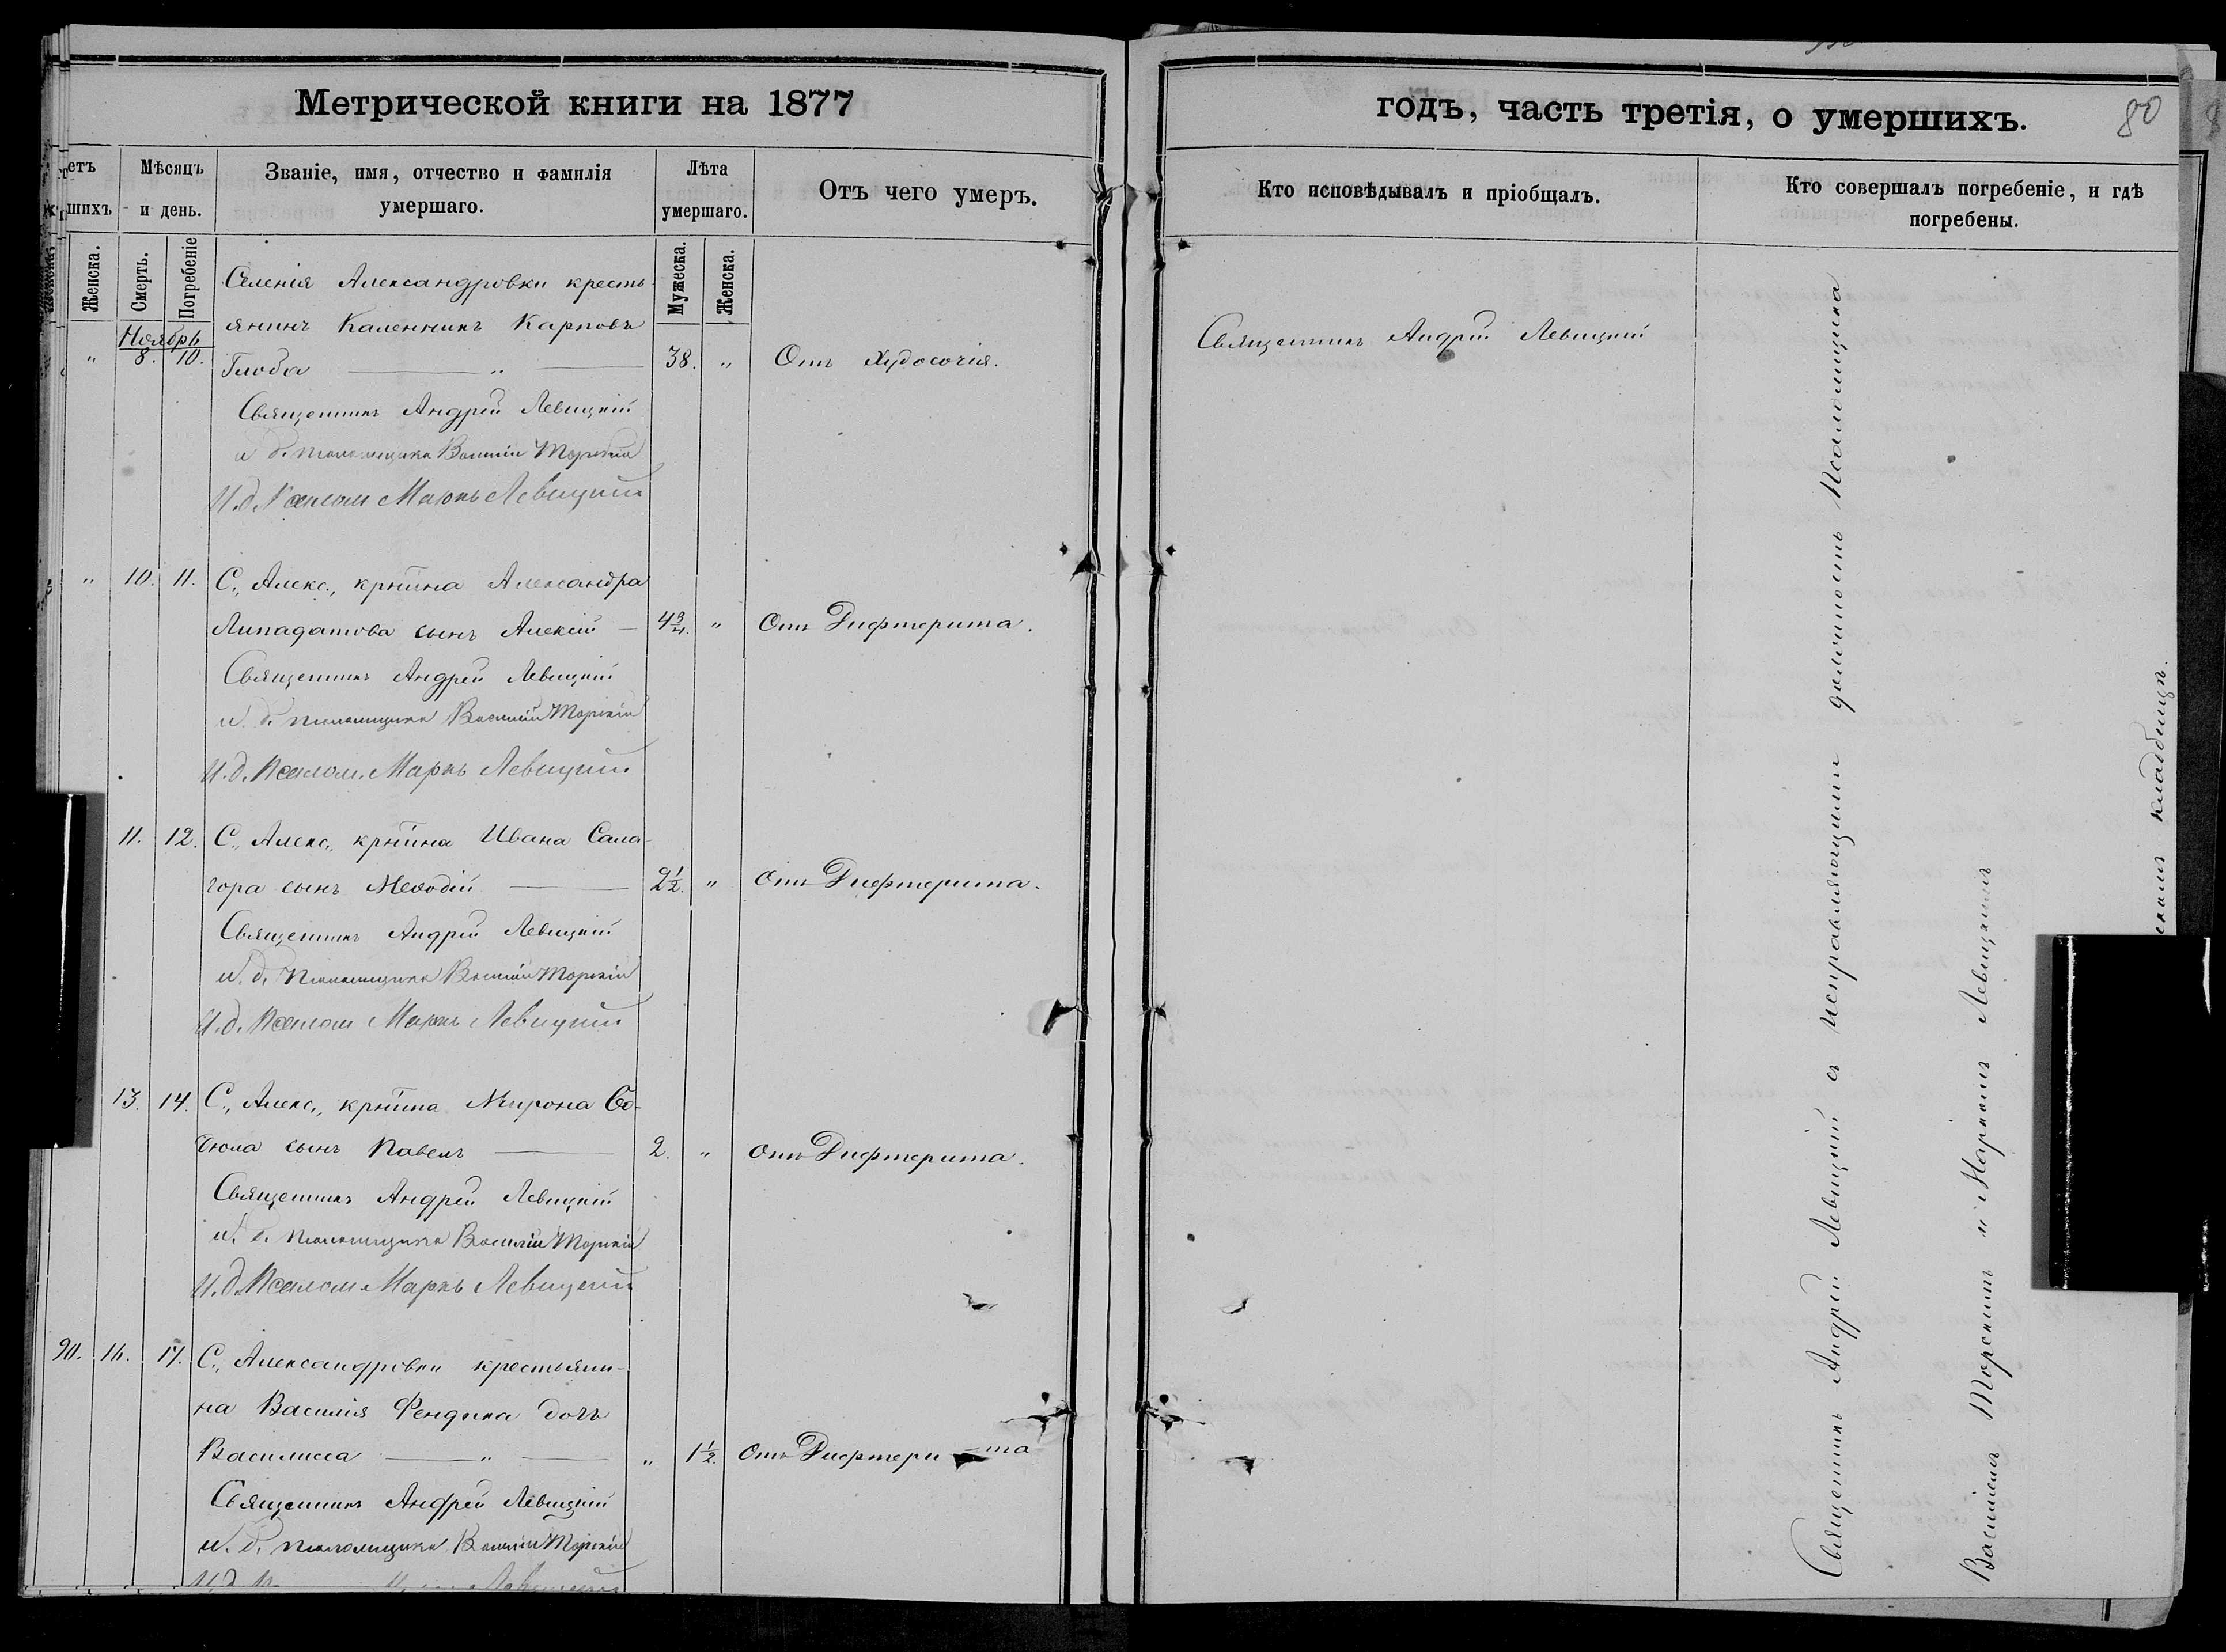 Метрической книги на 1877
годъ, часть третія, о умершихъ.
80
етъ
шихъ
Женска.
Мѣсяцъ и день.
Смерть.
Погребеніе
Званіе, имя, отчество и фамилія
умершаго.
Лѣта
умершаго.
Мужеска.
Женска.
Отъ чего умеръ.
Кто исповѣдывалъ и пріобщалъ.
Кто совершалъ погребеніе, и гдѣ
погребены.
Селенія Александровки кресть-
янинъ Каленникъ Карповъ
Ноябрь
" 8. 10. Глоба — " — 38. " Отъ Худосочія.
Священникъ Андрей Левицкій
Священникъ Андрей Левицкій
и. д. псаломщика Василій Торскій
И.д. Псалом Маркъ Левицкий
" 10. 11. С., Алекс., крѣтина Александра
Липадатова сынъ Алексій — 4 3/4. " Отъ Дифтерита.
Священникъ Андрей Левицкій
и. д. псаломщика Василій Торскій
И.д. Псалом. Маркъ Левицкий
11. 12. С., Алекс., крѣтина Ивана Сала-
гора сынъ Меѳодій — 2 1/2. " Отъ Дифтерита.
Священникъ Андрей Левицкій
и. д. псаломщика Василій Торскій
И.д. Псалом Маркъ Левицкий
13. 14. С., Алекс., крѣтина Мирона
сынъ Павелъ — 2. " Отъ Дифтерита.
Священникъ Андрей Левицкій
и. д. псаломщика Василій Торскій
И.д. Псалом Маркъ Левицкий
20. 16. 17. С., Александровки крестьяни-
на Василія Фендика дочь
Василисса — " — " 1 1/2. Отъ Дифтерита
Священникъ Андрей Левицкій
и. д. псаломщика Василій Торскій
Священникъ Андрей Левицкій съ исправляющими должность Псаломщика
Василіемъ Торскимъ и Маркомъ Левицкимъ
кладбищѣ.